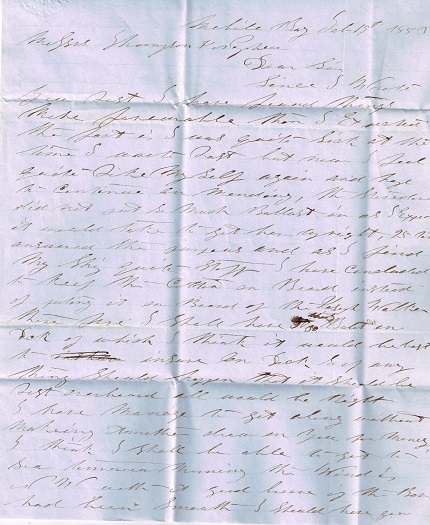 Mobile Bay Feb 19th 185
Messrs Thompson &
Dear Sir
Since I Wrote
you last I have found things
More favourable than I Expected
the fact is I was quite Sick at the
time I wrote last but now I feel
quite Like My Self again and hope
to Continue on Mending, the
did not out So Much Ballast in as I Expe
it would take to get her upright 95 tons
answered the purpose and as I find
My Ship quite Stiff I have Concluded
to keep the Cotton on Board instead
of puting it on Board of the
there fore I shall have 50 Bales on
Deck of which I think it would be best
to insure on Deck as if any
thing Should happen that it Should be
Lost overboard all would be Right
I have Manage to get along without
Making another draw on you for Money
I think I Shall be able to get to
Sea tomorrow Morning the Wind is
at N with a good
had been Smooth I Should have gone